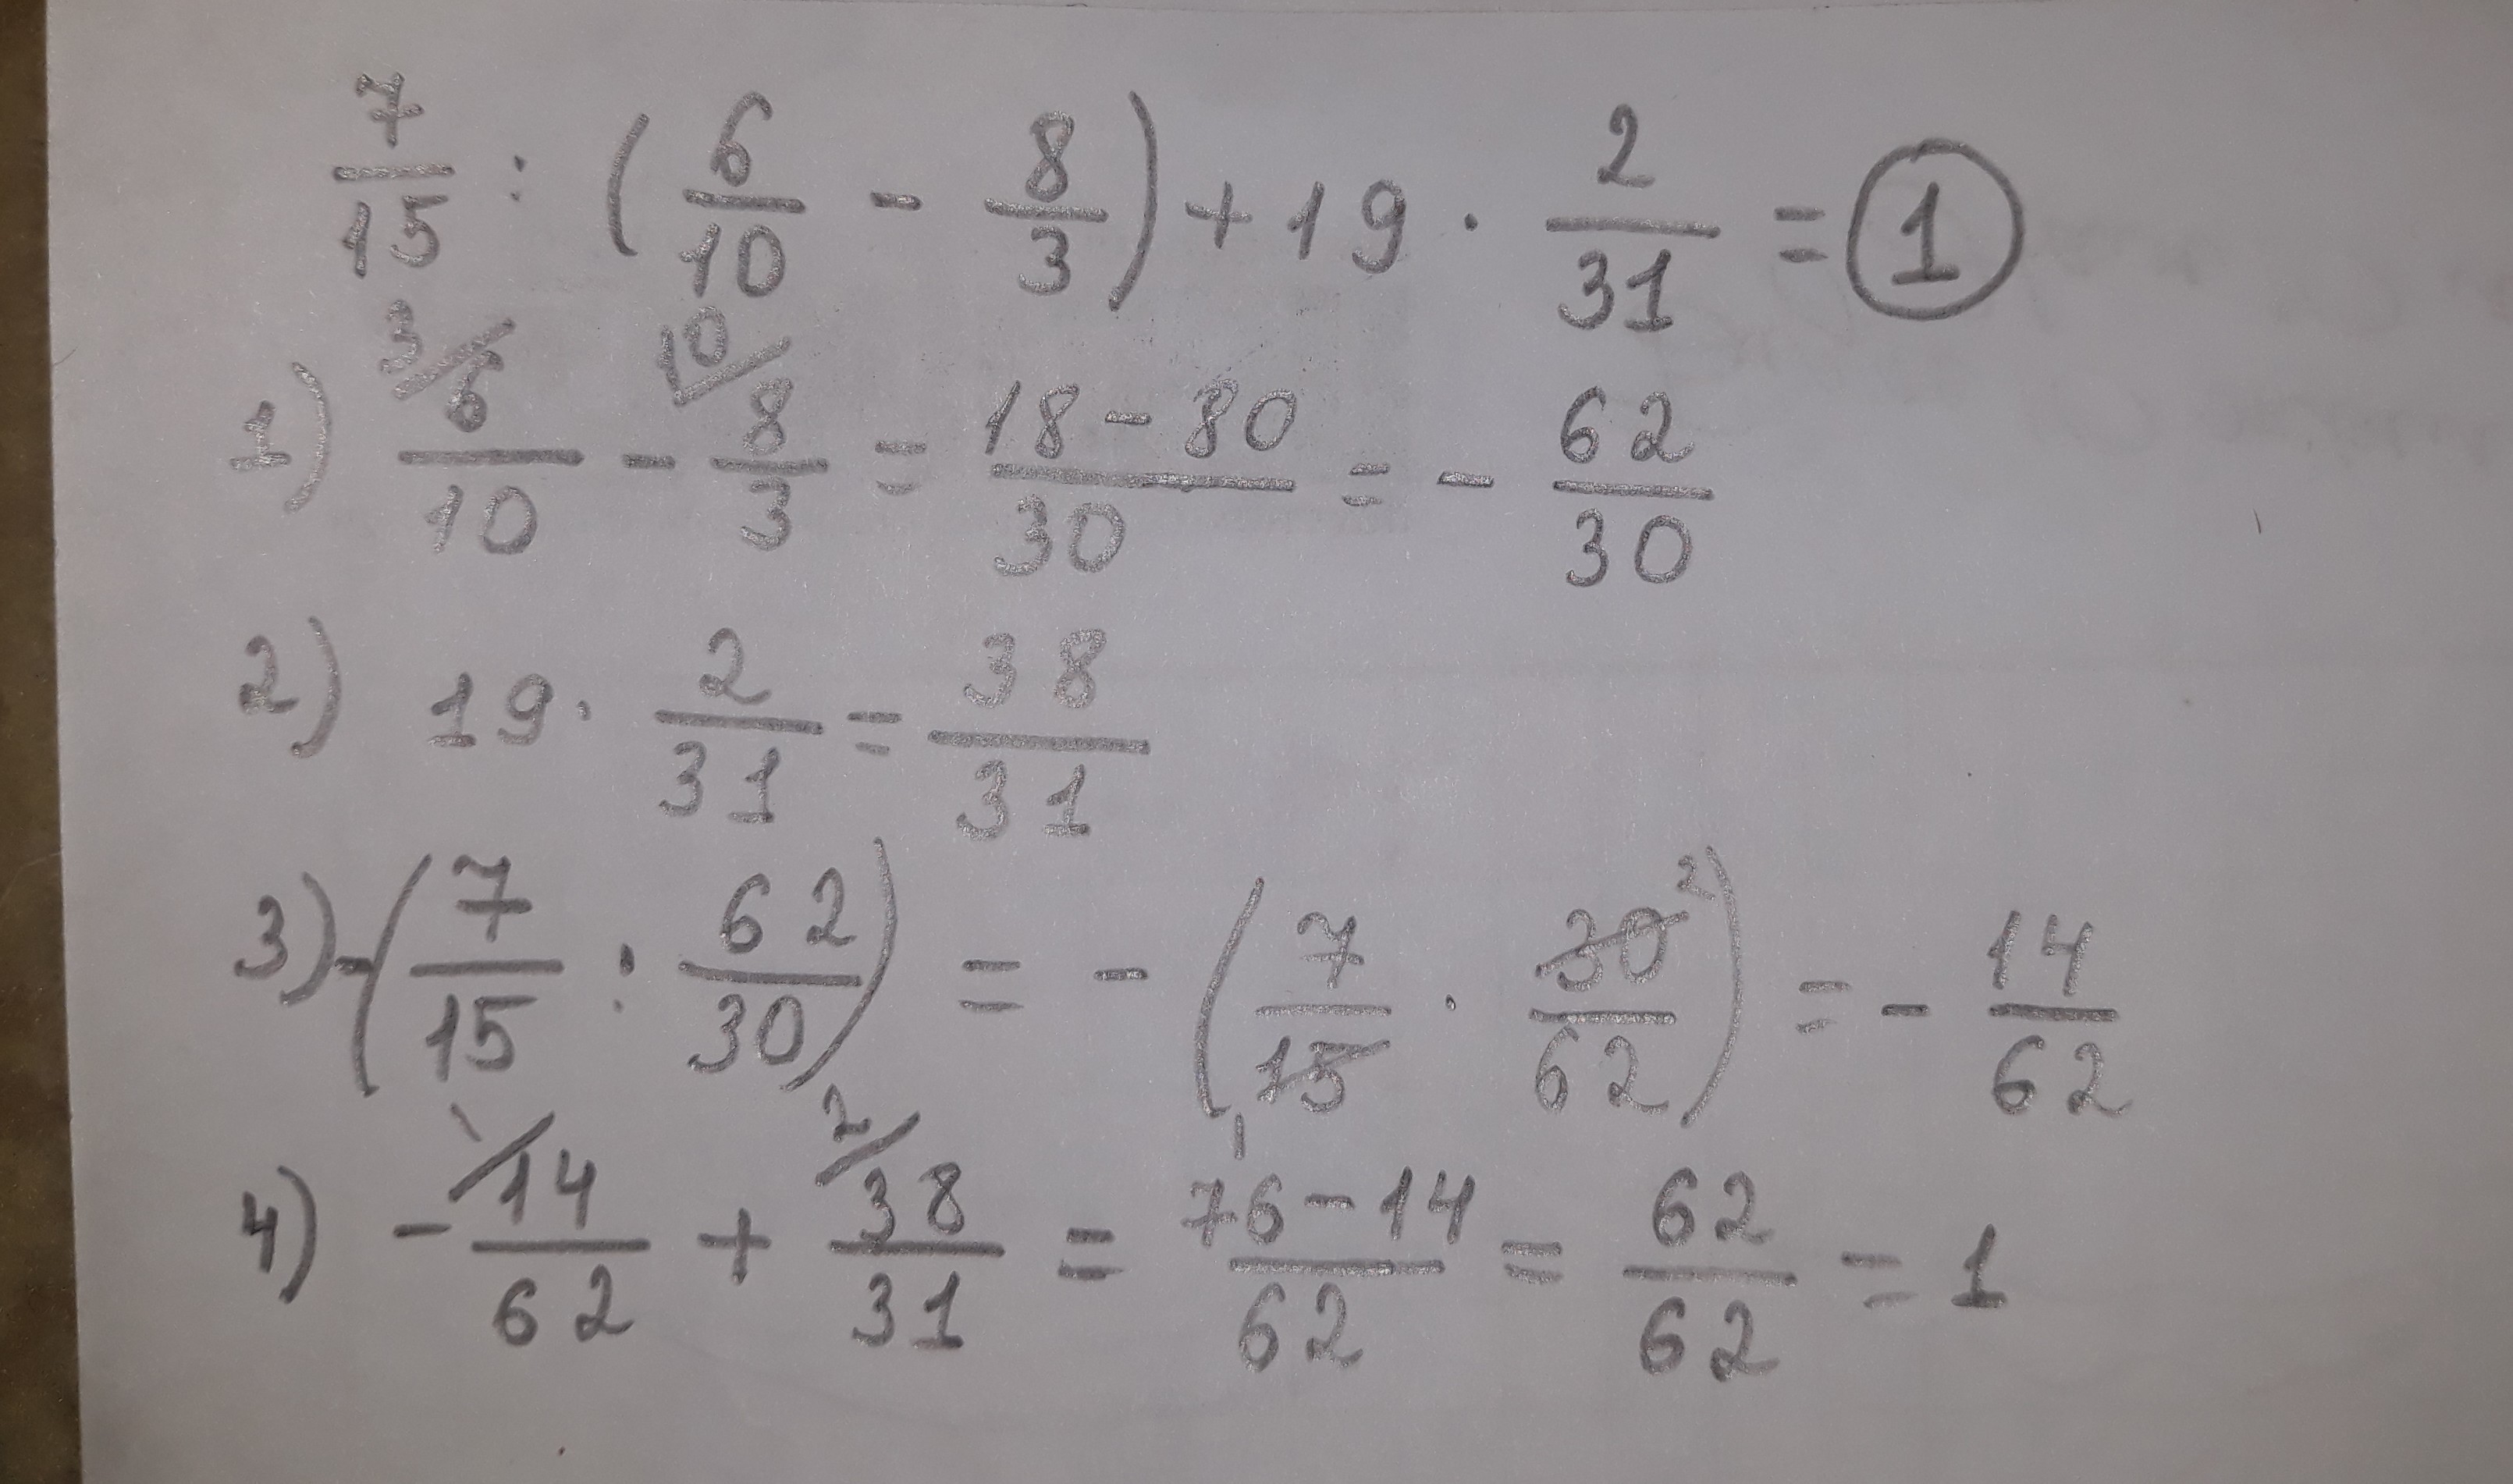 7/15 : (6/10 - 8/3) + 19 · 2/31 = 1
1) 3/ 6/10 - 10/ 8/3 = 18-80/30 = - 62/30
2) 19 · 2/31 = 38/31
3) -(7/15 : 62/30) = - (7/15 1 · 30 2/62) = - 14/62
4) - 14/62 + 2/ 38/31 = 76-14/62 = 62/62 = 1